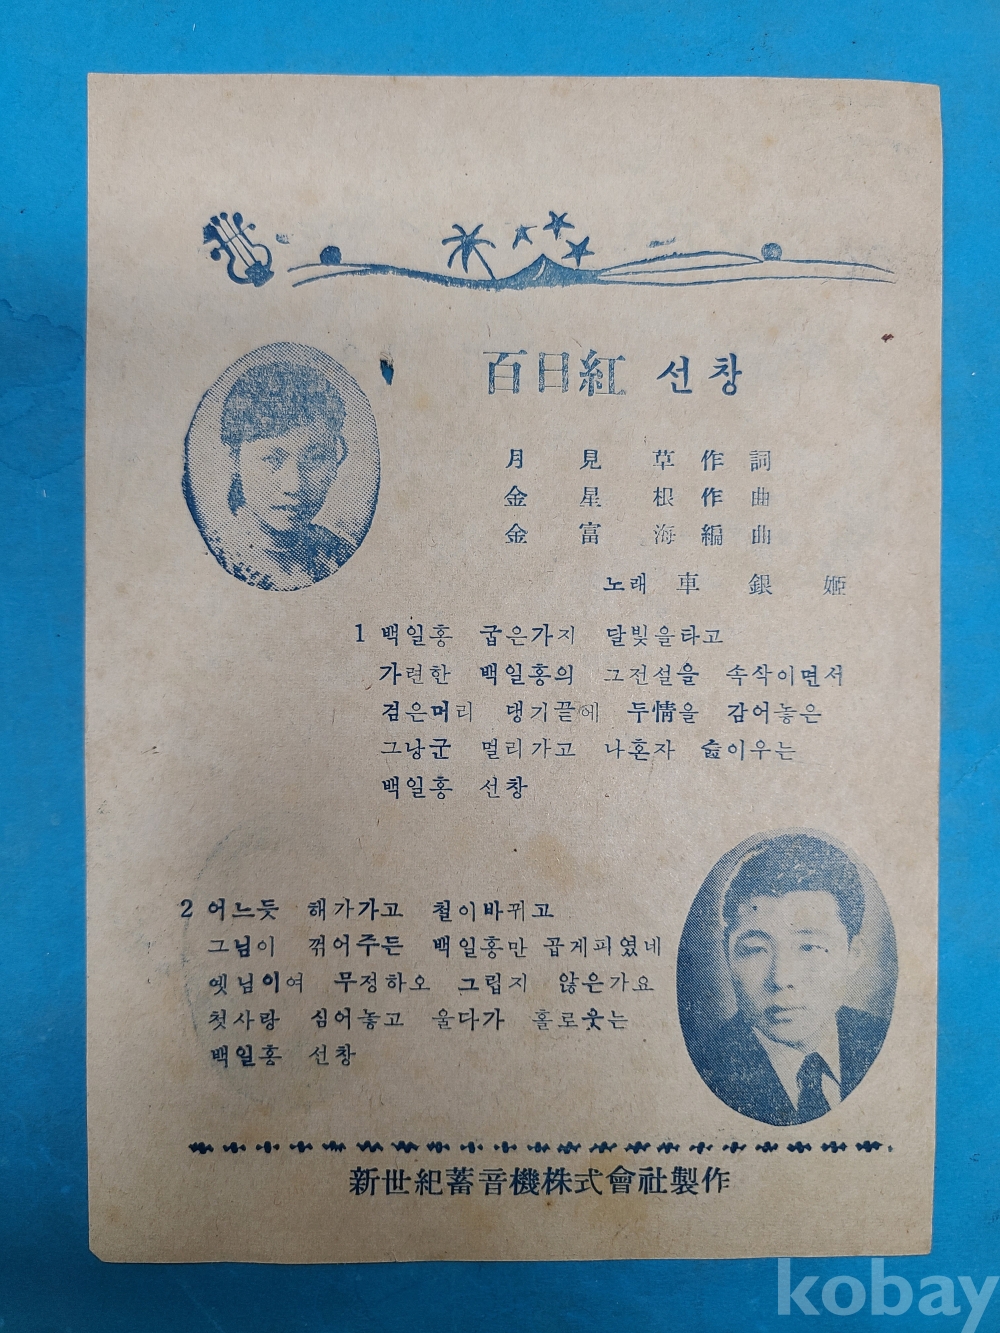 百日紅 선창
月見草 作詞
金星根 作曲
金富海 編曲
노래 車銀姬
1 백일홍 굽은가지 달빛을타고
가련한 백일홍의 그전설을 속삭이면서
검은머리 댕기끝에 두情을 감어놓은
그낭군 멀리가고 나혼자 숨이우는
백일홍 선창
2 어느듯 해가가고 철이바뀌고
그님이 꺾어주든 백일홍만 곱게피였네
옛님이여 무정하오 그립지 않은가요
첫사랑 심어놓고 울다가 홀로웃는
백일홍 선창
新世紀蓄音機株式會社製作
kobay